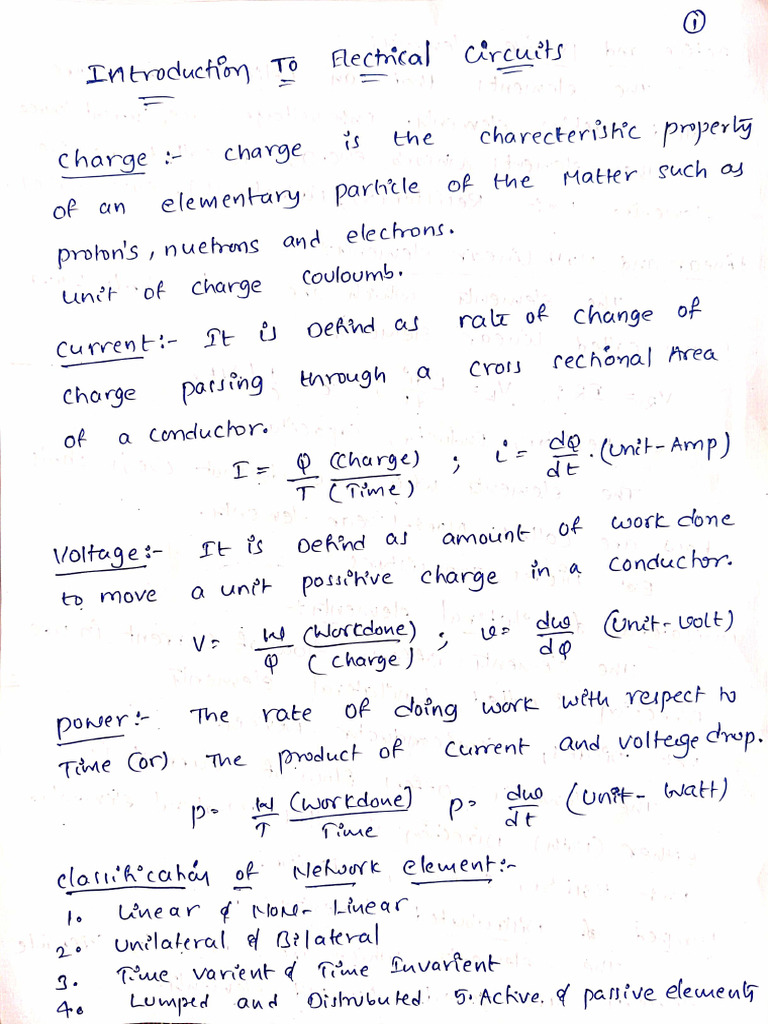 ①
Introduction To Electrical Circuits
charge :- charge is the charecteristic property
of an elementary particle of the Matter such as
proton's, nuetrons and electrons.
unit of charge couloumb.
current :- It is Defind as rate of change of
charge passing through a cross sectional Area
of a conductor.
I = Q (Charge) / T (Time) ; i = dQ/dt . (Unit-Amp)
Voltage :- It is Defind as amount of work done
to move a unit possitive charge in a conductor.
V = W (Workdone) / Q (Charge) ; v = dw/dQ (Unit-volt)
power :- The rate of doing work with respect to
Time (or) The product of current and voltage drop.
P = W (Workdone) / T Time P = dw/dt (Unit- Watt)
classification of Network element :-
1. Linear & None- Linear
2. Unilateral & Bilateral
3. Time varient & Time Invarient
4. Lumped and Distrubuted 5. Active & passive elements